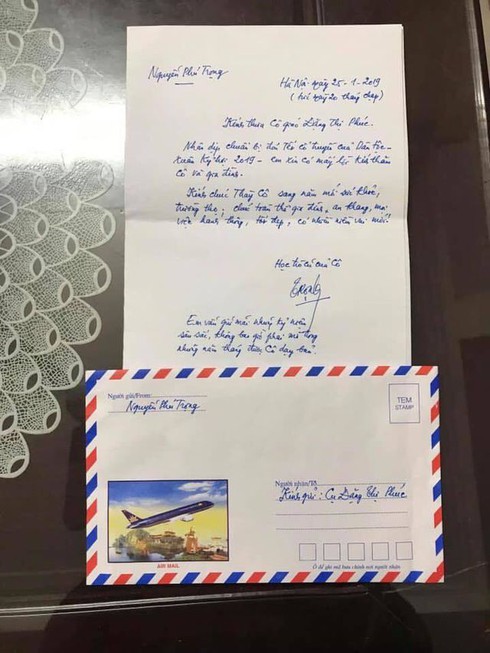 Nguyễn Phú Trọng
Hà Nội ngày 25-1-2019
(tức ngày 20 tháng chạp)
Kính thưa Cô giáo Đặng Thị Phúc.
Nhân dịp chuẩn bị đón Tết cổ truyền của Dân tộc -
Xuân Kỷ Hợi 2019 - em xin có mấy lời kính thăm
Cô và gia đình.
Kính chúc Thầy Cô sang năm mới sức khỏe,
trường thọ; chúc toàn thể gia đình, an khang, mọi
việc hanh thông, tốt đẹp, có nhiều niềm vui mới.
Học trò cũ của Cô
Trọng
Em vẫn giữ mãi những kỷ niệm
sâu sắc, không bao giờ phai mờ trong
những năm tháng được Cô dạy bảo.
Người gửi/From:
Nguyễn Phú Trọng
TEM
STAMP
Người nhận/To:
Kính gửi: Cụ Đặng Thị Phúc
AIR MAIL
Ô để ghi mã bưu chính nơi người nhận